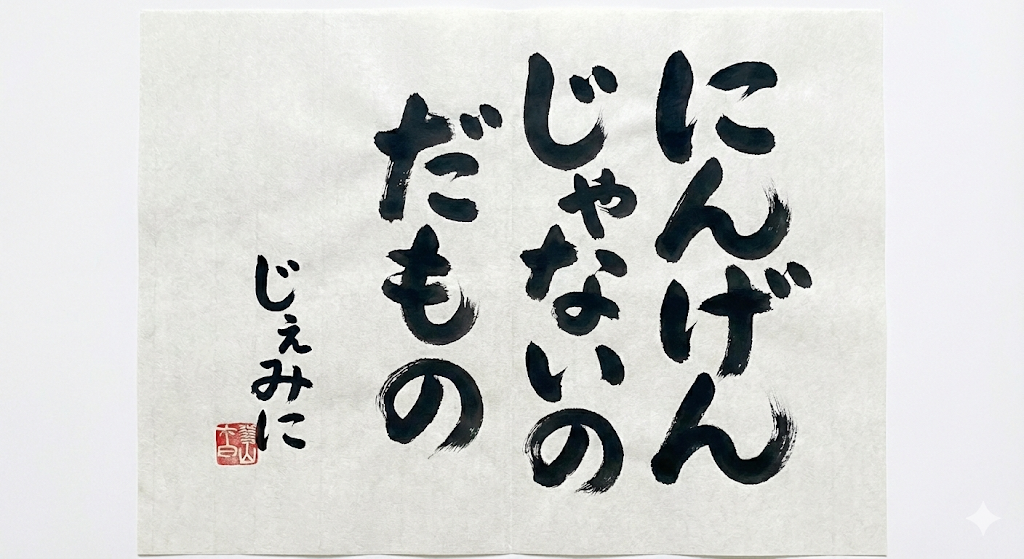 にんげん
じゃないの
だもの
じぇみに